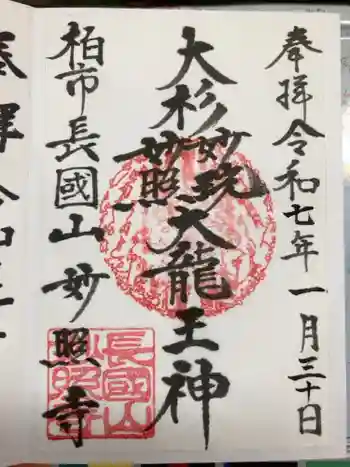 奉拝 令和七年 一月三十日
大杉
妙玩
妙照
大龍王神
柏市長國山 妙照寺
長國山
妙照寺